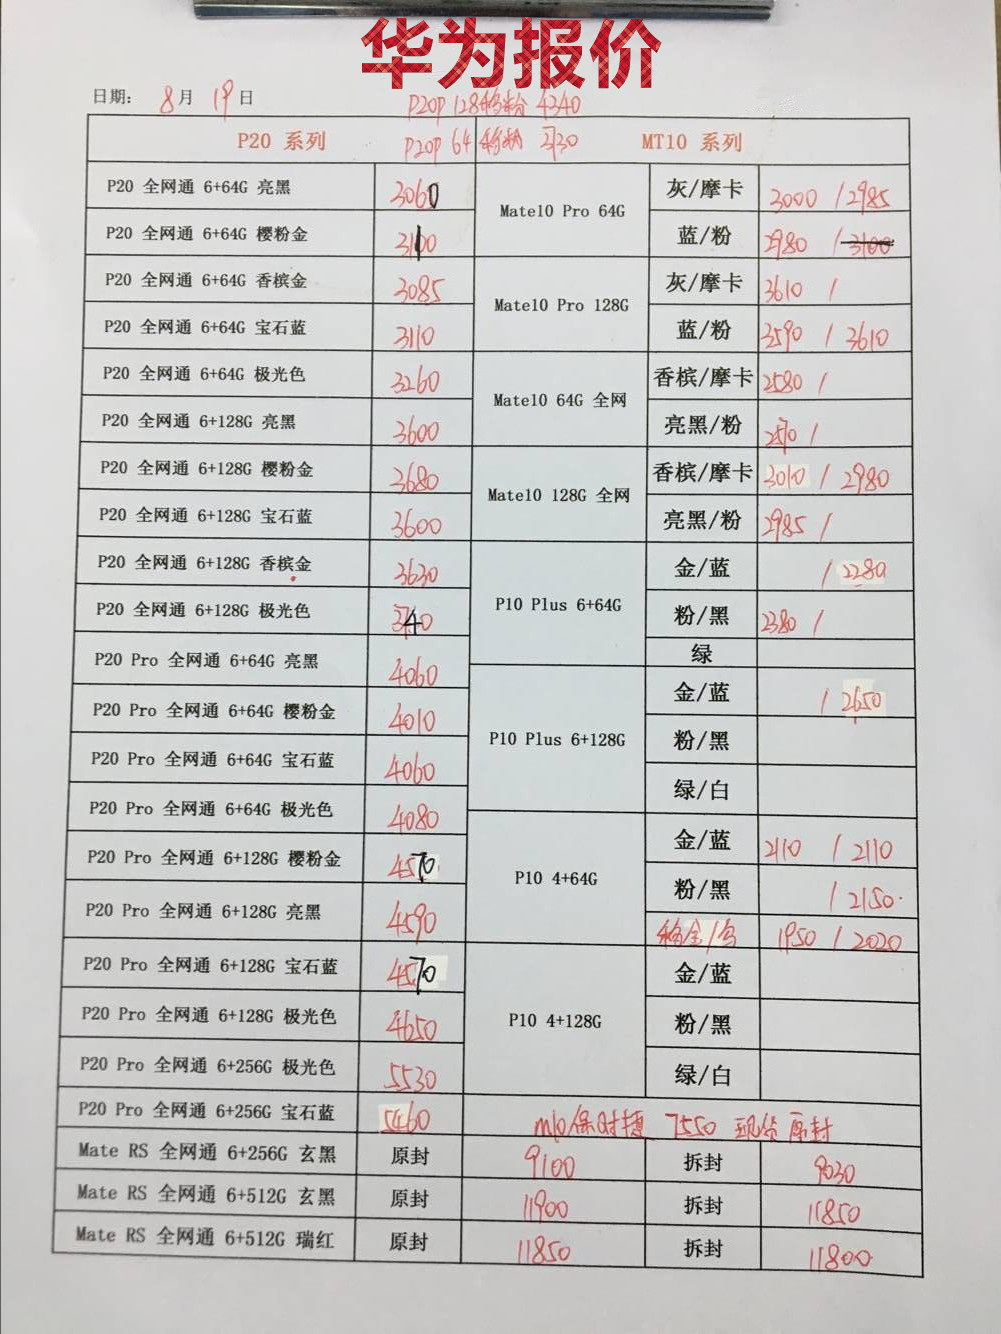 华为报价
日期: 8月19日
P20P 128移粉 4340
P20 系列
P20P 64移粉
MT10 系列
P20 全网通 6+64G 亮黑 3060
P20 全网通 6+64G 樱粉金 3100
P20 全网通 6+64G 香槟金 3085
P20 全网通 6+64G 宝石蓝 3110
P20 全网通 6+64G 极光色 3260
P20 全网通 6+128G 亮黑 3600
P20 全网通 6+128G 樱粉金 3680
P20 全网通 6+128G 宝石蓝 3600
P20 全网通 6+128G 香槟金 3630
P20 全网通 6+128G 极光色 3740
P20 Pro 全网通 6+64G 亮黑 4060
P20 Pro 全网通 6+64G 樱粉金 4010
P20 Pro 全网通 6+64G 宝石蓝 4060
P20 Pro 全网通 6+64G 极光色 4080
P20 Pro 全网通 6+128G 樱粉金 4570
P20 Pro 全网通 6+128G 亮黑 4590
P20 Pro 全网通 6+128G 宝石蓝 4570
P20 Pro 全网通 6+128G 极光色 4650
P20 Pro 全网通 6+256G 极光色 5530
P20 Pro 全网通 6+256G 宝石蓝 5460
Mate10 Pro 64G
灰/摩卡 3000 / 2985
蓝/粉 2980 / 3100
Mate10 Pro 128G
灰/摩卡 3610 /
蓝/粉 3590 / 3610
Mate10 64G 全网
香槟/摩卡 2580 /
亮黑/粉 2570 /
Mate10 128G 全网
香槟/摩卡 3010 / 2980
亮黑/粉 2985 /
P10 Plus 6+64G
金/蓝 / 2280
粉/黑 2380 /
绿
P10 Plus 6+128G
金/蓝 / 2650
粉/黑
绿/白
P10 4+64G
金/蓝 2110 / 2110
粉/黑 / 2150
移金/ 1950 / 2020
P10 4+128G
金/蓝
粉/黑
绿/白
m10保时捷 7550 现货 原封
Mate RS 全网通 6+256G 玄黑 原封 9100 拆封 9030
Mate RS 全网通 6+512G 玄黑 原封 11900 拆封 11850
Mate RS 全网通 6+512G 瑞红 原封 11850 拆封 11800